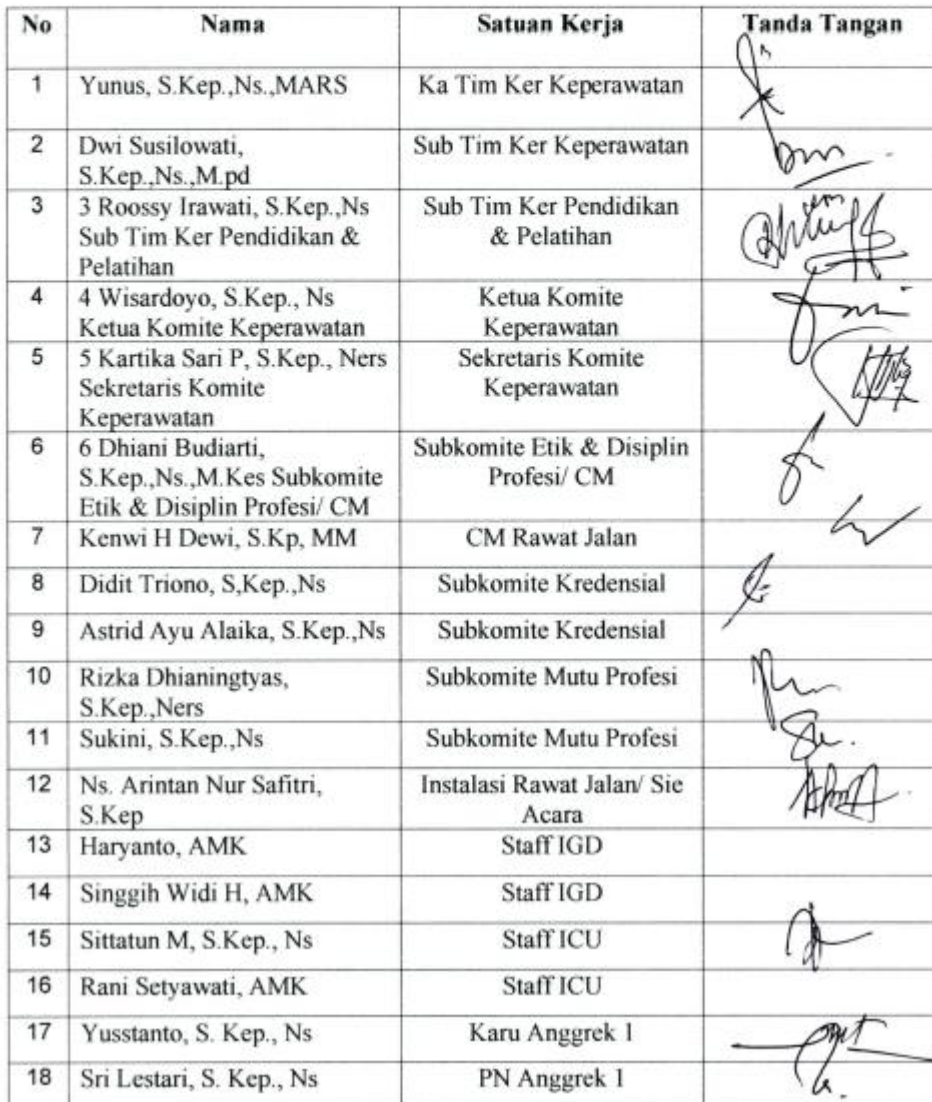 No Nama Satuan Kerja Tanda Tangan
1 Yunus, S.Kep.,Ns.,MARS Ka Tim Ker Keperawatan
2 Dwi Susilowati, Sub Tim Ker Keperawatan
S.Kep.,Ns.,M.pd
3 3 Roossy Irawati, S.Kep.,Ns Sub Tim Ker Pendidikan
Sub Tim Ker Pendidikan & & Pelatihan
Pelatihan
4 4 Wisardoyo, S.Kep., Ns Ketua Komite
Ketua Komite Keperawatan Keperawatan
5 5 Kartika Sari P, S.Kep., Ners Sekretaris Komite
Sekretaris Komite Keperawatan
Keperawatan
6 6 Dhiani Budiarti, Subkomite Etik & Disiplin
S.Kep.,Ns.,M.Kes Subkomite Profesi/ CM
Etik & Disiplin Profesi/ CM
7 Kenwi H Dewi, S.Kp, MM CM Rawat Jalan
8 Didit Triono, S,Kep.,Ns Subkomite Kredensial
9 Astrid Ayu Alaika, S.Kep.,Ns Subkomite Kredensial
10 Rizka Dhianingtyas, Subkomite Mutu Profesi
S.Kep.,Ners
11 Sukini, S.Kep.,Ns Subkomite Mutu Profesi
12 Ns. Arintan Nur Safitri, Instalasi Rawat Jalan/ Sie
S.Kep Acara
13 Haryanto, AMK Staff IGD
14 Singgih Widi H, AMK Staff IGD
15 Sittatun M, S.Kep., Ns Staff ICU
16 Rani Setyawati, AMK Staff ICU
17 Yusstanto, S. Kep., Ns Karu Anggrek 1
18 Sri Lestari, S. Kep., Ns PN Anggrek 1